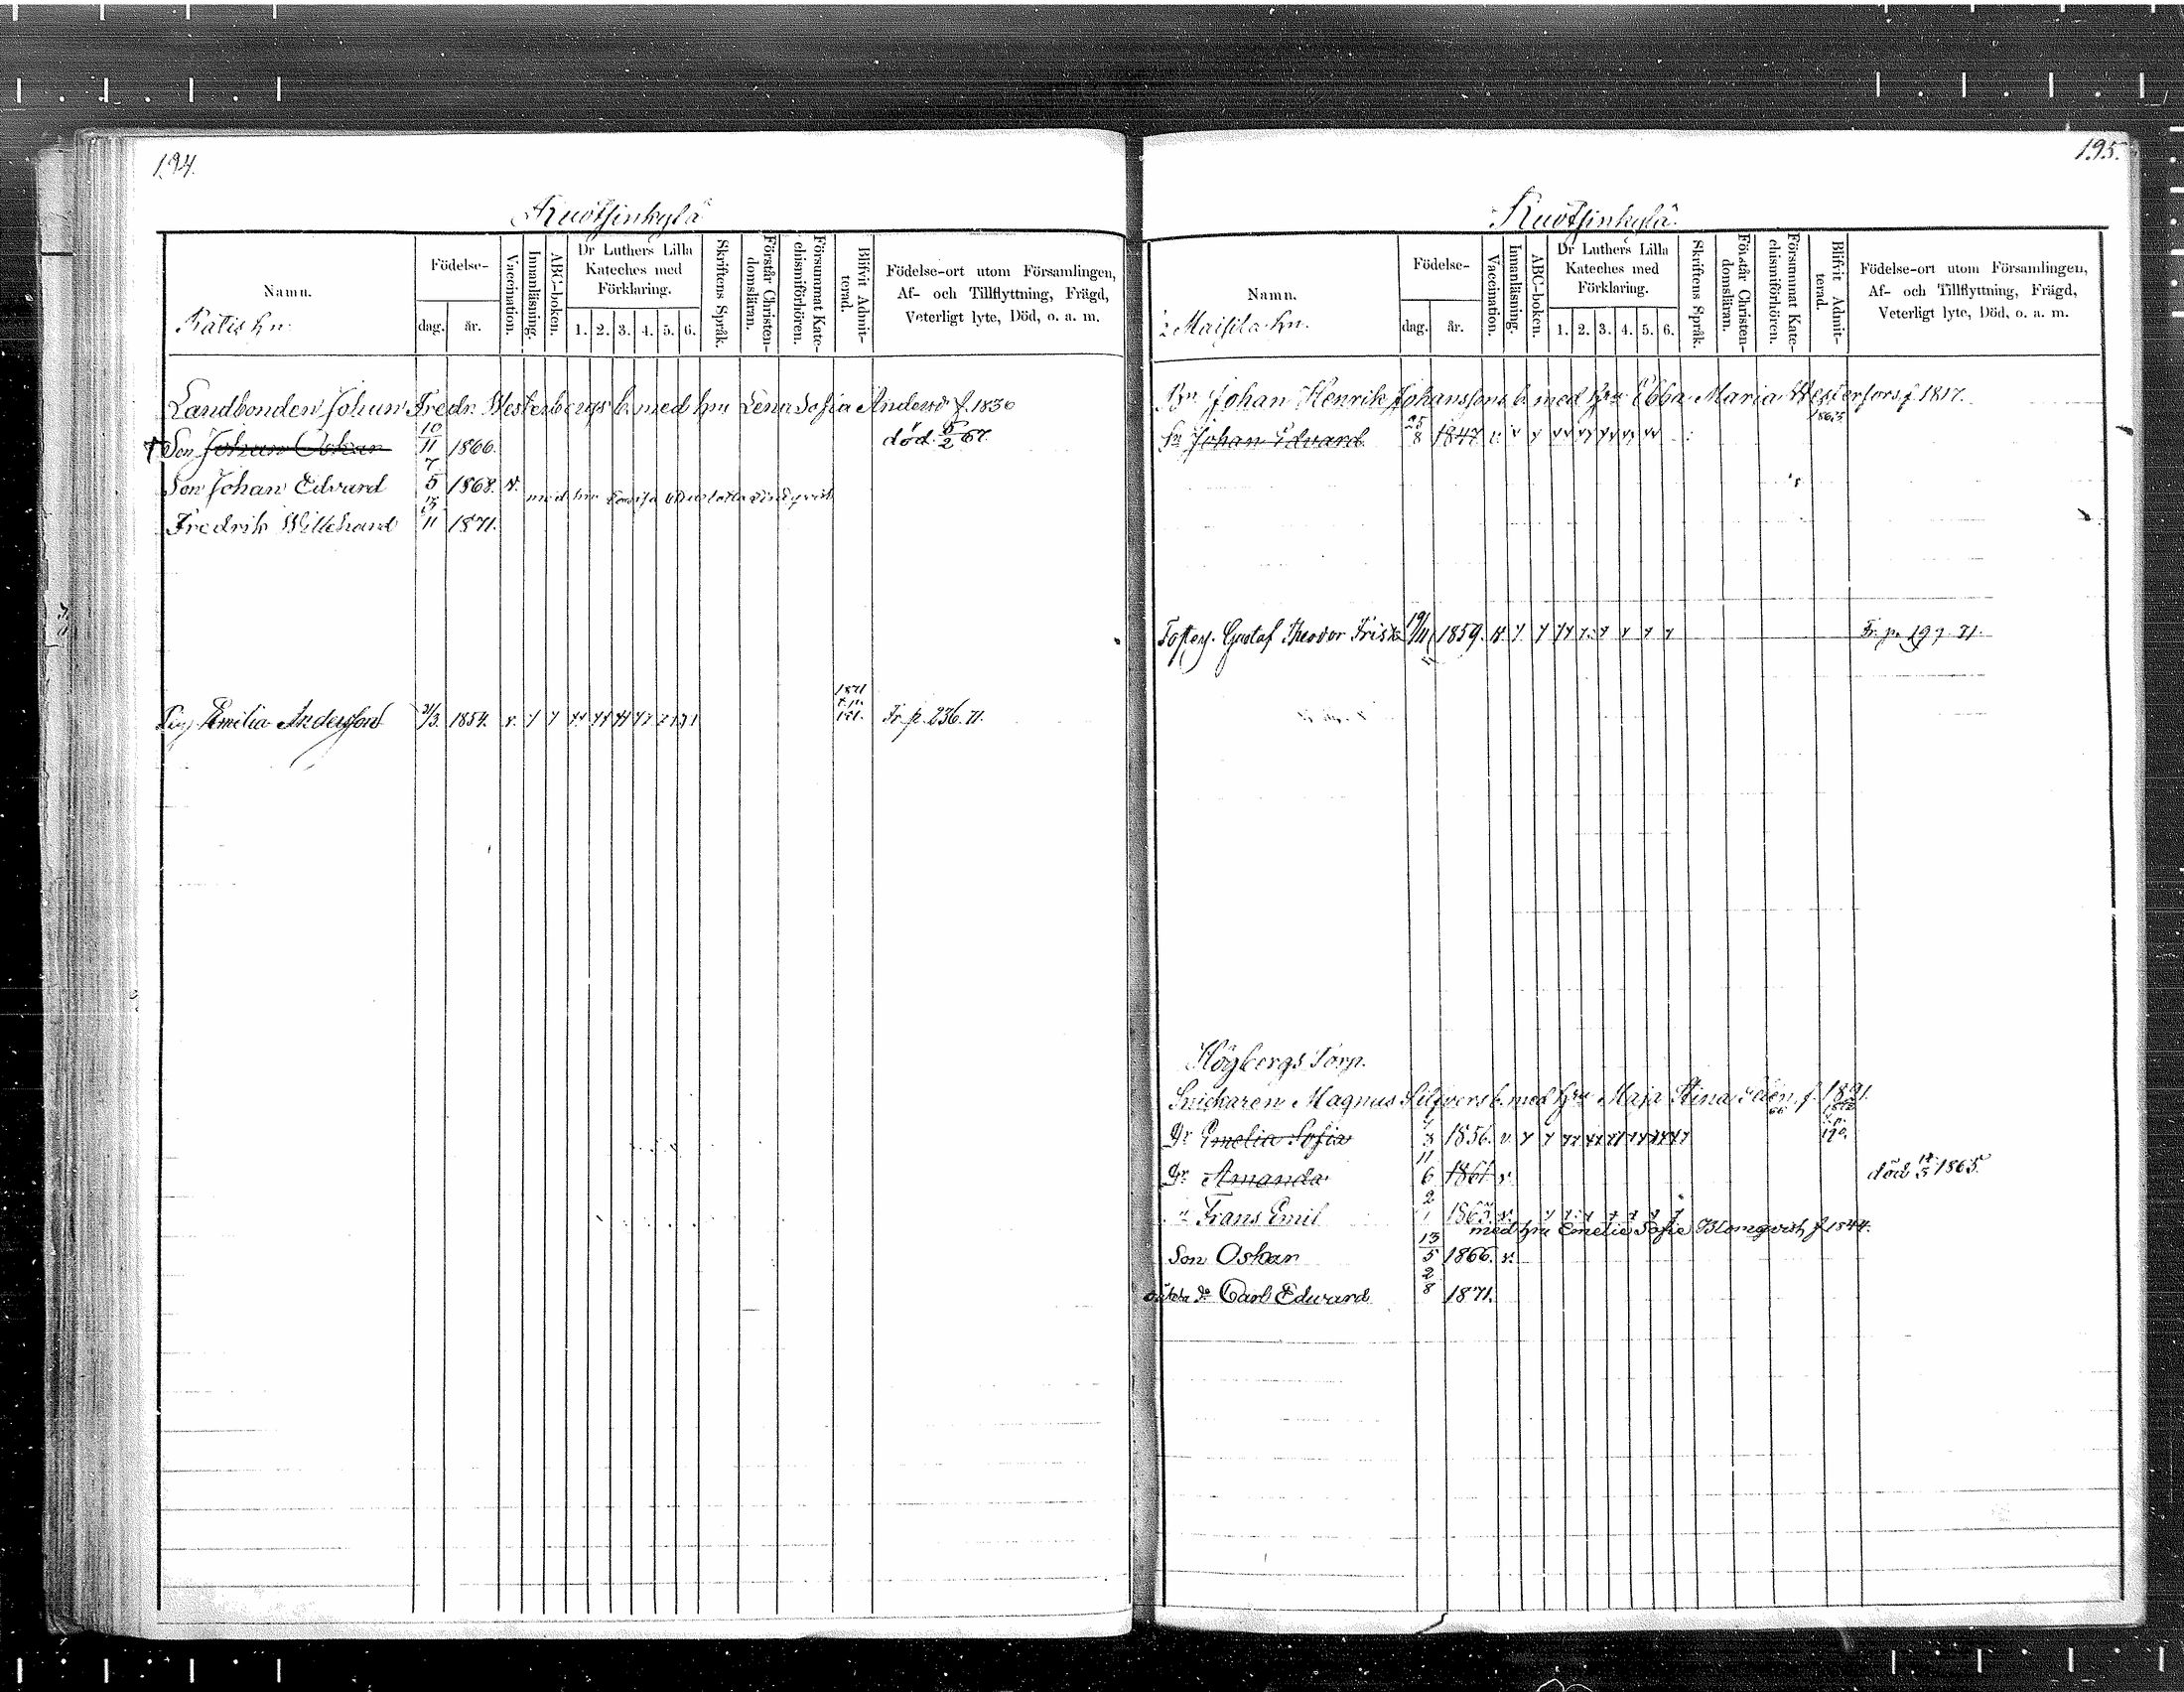 194.
Kuotsinkylä
Namn.
Födelse-
dag.
år.
Vaccination.
Innanläsning.
ABC-boken.
Dr Luthers Lilla
Kateches med
Förklaring.
1. 2. 3. 4. 5. 6.
Skriftens Språk.
Förstår Christen-
domsläran.
Försummat Kate-
chismiförhören.
Blifvit Admit-
terad.
Födelse-ort utom Församlingen,
Af- och Tillflyttning, Frägd,
Veterligt lyte, Död, o. a. m.
Landbonden Johan Fredr. Westerbergs b. med hru Lena Sofia f. 1830
Son Johan Oskar 10/11 1866. död 67.
Son Johan Edvard 7/5 1868. v.
med hru
Fredrik Willehard 11 1871.
1871
Pig. Emilia Andersson 21/3. 1854. v. Fr. p. 236. 71.
195.
Kuotsinkylä.
Namn.
Födelse-
dag.
år.
Vaccination.
Innanläsning.
ABC-boken.
Dr Luthers Lilla
Kateches med
Förklaring.
1. 2. 3. 4. 5. 6.
Skriftens Språk.
Förstår Christen-
domsläran.
Försummat Kate-
chismiförhören.
Blifvit Admit-
terad.
Födelse-ort utom Församlingen,
Af- och Tillflyttning, Frägd,
Veterligt lyte, Död, o. a. m.
Maisila hn.
Johan Henrik Johanssons b. med hru Ebba Maria Westerfors f. 1817.
1863
Sn Johan Edvard 25/8 1847 v.
Gustaf Theodor Frisk 19/11 1859. v. Fr. p. 197. 71.
Högbergs Torp.
Snickaren Magnus b. med hru Maja Stina f.
Dr Emelia Sofia 3 1856. v. 190.
Dr Amanda 11/6 1861 v. död 1865.
" Frans Emil 2/1
med hru Emelie Sofie Blomqvist f 1844.
Son Oskar 13/5 1866. v.
Carl Edward 2/8 1871.